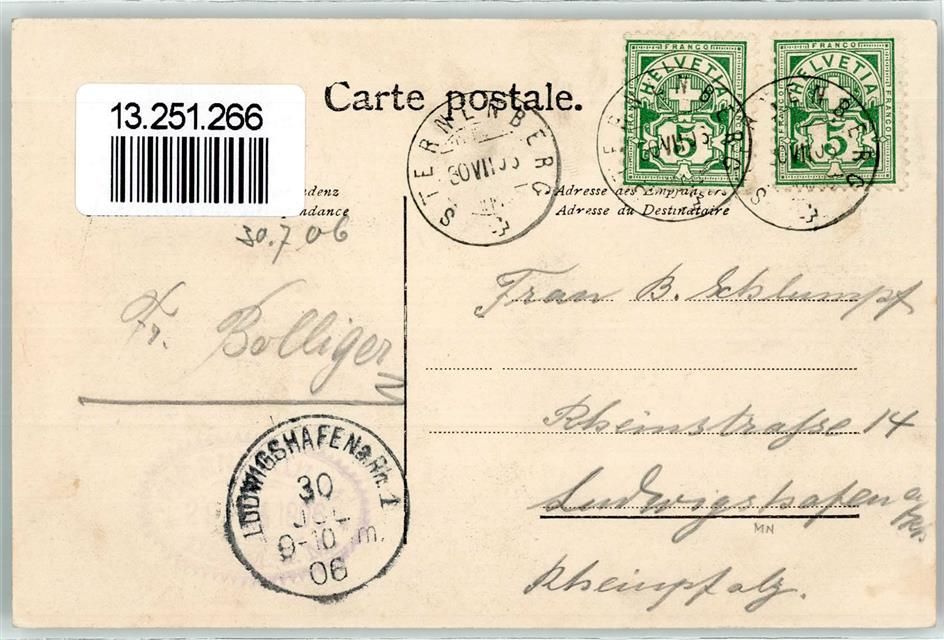 13.251.266
Carte postale.
denz
ndance
Adresse des Empfängers
Adresse du Destinataire
FRANCO
HELVETIA
5
FRANCO
HELVETIA
5
STERNENBERG
30 VII 06
STERNENBERG
30 VII 06
STERNENBERG
30 VII 06
30.7 06
Fr. Bolliger
Frau B. Schlumpf
Rheinstraße 14
Ludwigshafen a/Rh.
MN
Rheinpfalz.
LUDWIGSHAFEN a. Rh. 1
30
JUL
9-10 m.
06